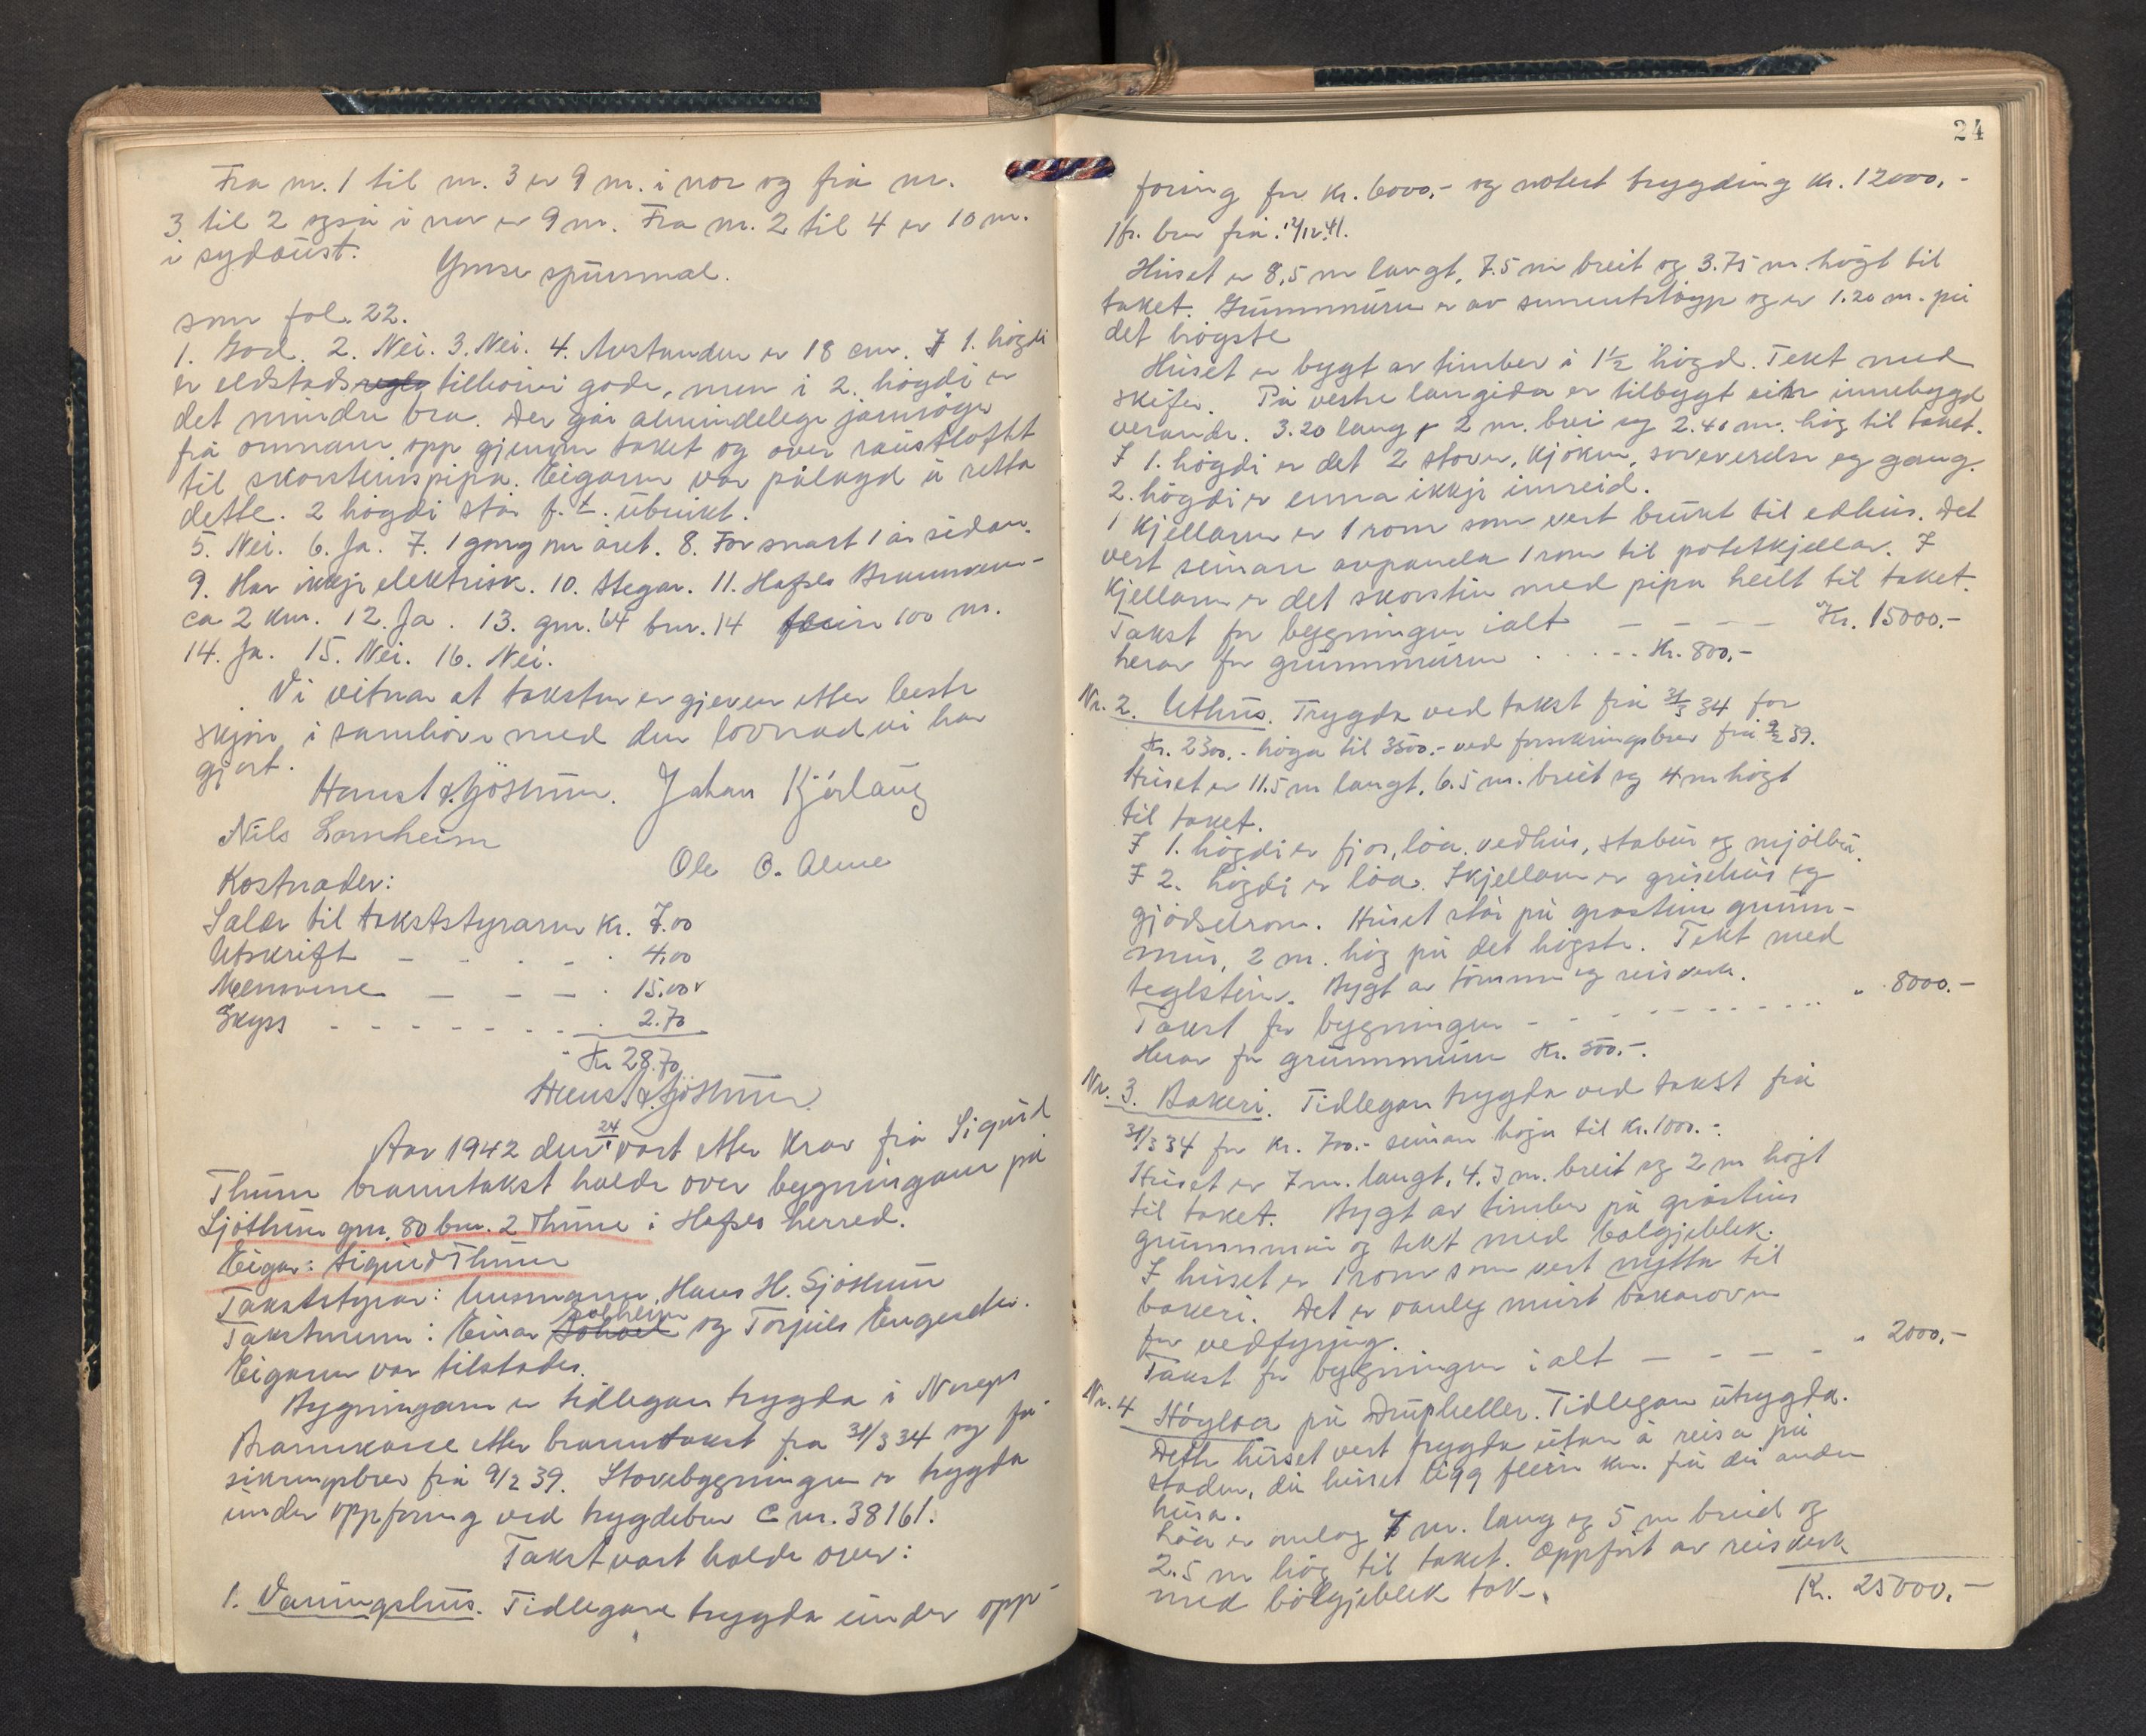 Fra nr. 1 til nr. 3 er 9 m. i nor og frå nr.
3 til 2 også i nor er 9 m. Fra nr. 2 til 4 er 10 m.
i sydaust.
Ymse spursmal.
som fol. 22.
1. God. 2. Nei. 3. Nei. 4. Avstanden er 18 cm. I 1. högdi
er eldstads tilhövi gode, men i 2. högdi er
det mindre bra. Der går almindelege jarnröyr
frå omnane opp gjenom taket og over raustloftet
til skorsteinspipa. Eigaren var pålagd å retta
dette. 2 högdi står f. t. ubrukt.
5. Nei. 6. Ja. 7. 1 gong om året. 8. For snart 1 år sidan.
9. Har ikkje elektrisk. 10. Stegar. 11. Hafslo Brunnen-
ca 2 km. 12. Ja. 13. gnr. 64 bnr. 14 100 m.
14. Ja. 15. Nei. 16. Nei.
Vi vitnar at taksten er gjeven etter beste
skjön i samhöve med den lovnad vi har
gjort.
Hans H. Sjöthun. Johan Kjörlaug
Nils Lomheim
Ole O. Alme
Kostnader:
Salær til takststyraren Kr. 7.00
Utskrift - - - - 4.00
Mennene - - - 15.00
Skyss - - - - - - - 2.70
Kr 28.70
Hans H. Sjöthun.
Aar 1942 den 24/ vart etter krav frå Sigurd
Thune branntakst halde over bygningane på
Sjöthun gnr. 80 bnr. 2 Thune i Hafslo herred.
Eigar: Sigurd Thune
Takststyrar: lensmann Hans H. Sjöthun
Takstmenn: Einar Solheim og Torjuls Engeset.
Eigaren var tilstades.
Bygningane er tidlegare trygda i Noregs
Brannkasse etter branntakst fra 31/3 34 og for-
sikringsbrev frå 9/2 39. Stovebygningen er trygda
under oppföring ved trygdebrev C nr. 38161.
Takst vart halde over:
1. Vaningshus. Tidlegare trygda under opp-
24
föring for kr. 6000,- og notert trygding kr. 12000,-
jfr. brev frå 12/12.41.
Huset er 8,5 m langt, 7.5 m breit og 3.75 m. högt til
taket. Grunnmuren er av sementstöyp og er 1.20 m. på
det högste
Huset er bygt av timber i 1½ högd. Tekt med
skifer. På vestre langsida er tilbygt ein innebygd
verande. 3.20 lang, 2 m. brei og 2.40 m. hög til taket.
I 1. högdi er det 2 stover, kjöken, soveverelse og gang.
2. högdi er enna ikkje innreid.
I kjellaren er 1 rom som vert brukt til eldhus. Det
vert seinare avpanela 1 rom til potetkjellar. I
kjellaren er det skorstein med pipa heilt til taket.
Takst for bygningen ialt - - - - Kr. 15000.-
herav for grunnmuren . . . . . Kr. 800,-
Nr. 2. Uthus. Trygda ved takst frå 31/3 34 for
Kr. 2300.- höga til 3500.- ved forsikringsbrev frå 9/2 39.
Huset er 11.5 m langt, 6.5 m. breit og 4 m högt
til taket.
I 1. högdi er fjos, löa, vedhus, stabur og mjölbu.
I 2. högdi er löa. I kjellaren er grisehus og
gjödselrom. Huset står på gråstein grunn-
mur, 2 m. hög på det högste. Tekt med
teglstein. Bygt av tömmer og reisverk.
Takst for bygningen - - - - - - - - „ 8000.-
Herav for grunnmuren Kr. 500.-
Nr. 3. Bakeri. Tidlegare trygda ved takst frå
31/3 34 for kr. 700.- seinare höga til kr. 1000.-
Huset er 7 m. langt, 4.5 m. breit og 2 m högt
til taket. Bygt av timber på gråsteins
grunnmur og tekt med bölgjeblek.
I huset er 1 rom som vert nytta til
bakeri. Det er vanleg murt bakarovn
for vedfyring.
Takst for bygningen i alt - - - - „ 2000,-
Nr. 4 Höyløa på Drüpheller. Tidlegare utrygda.
Dette huset vert trygda utan å reisa på
staden, då huset ligg fleire km. frå dei andre
husa.
Löa er omlag 7 m. lang og 5 m breid og
2.5 m hög til taket. Oppfört av reisverk
med bölgjeblek tak.
Kr. 25000.-